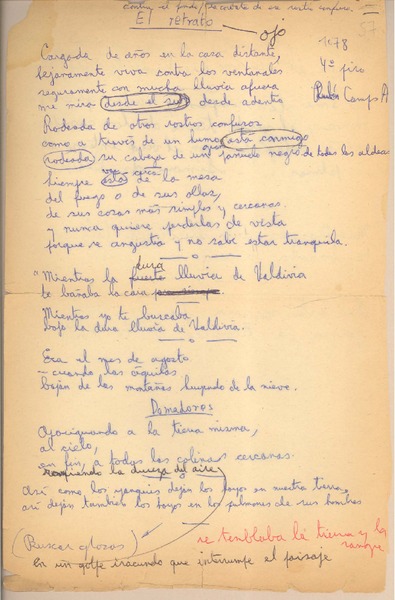 contra el fondo,
El retrato
ojo
57
1078
4º piso
Cargada de años en la casa distante,
lejanamente viva contra los ventanales
seguramente con mucha lluvia afuera
me mira desde el sur desde adentro
Rodeada de otros rostros confusos
como a través de un humo está conmigo
rodeada su cabeza de un pañuelo negro de todas las aldeas
siempre está cerca de la mesa
del fuego o de sus ollas,
de sus cosas más simples y cercanas.
y nunca quiere perderlas de vista
porque se angustia y no sabe estar tranquila.
dura
"Mientras la fuerte lluvia de Valdivia
te bañaba la cara
Mientras yo te buscaba
bajo la dura lluvia de Valdivia.
Era el mes de agosto
- cuando las águilas
bajan de las montañas huyendo de la nieve.
Domadores
Apaciguando a la tierra misma,
al cielo,
en fin, a todas las colinas cercanas.
rompiendo la dureza del aire
Así como los yanquis dejan los hoyos en nuestra tierra,
así dejan también los hoyos en los pulmones de sus hombres
se temblaba la tierra y la sangre
(Buscar glosas)
En un golpe iracundo que interrumpe el paisaje